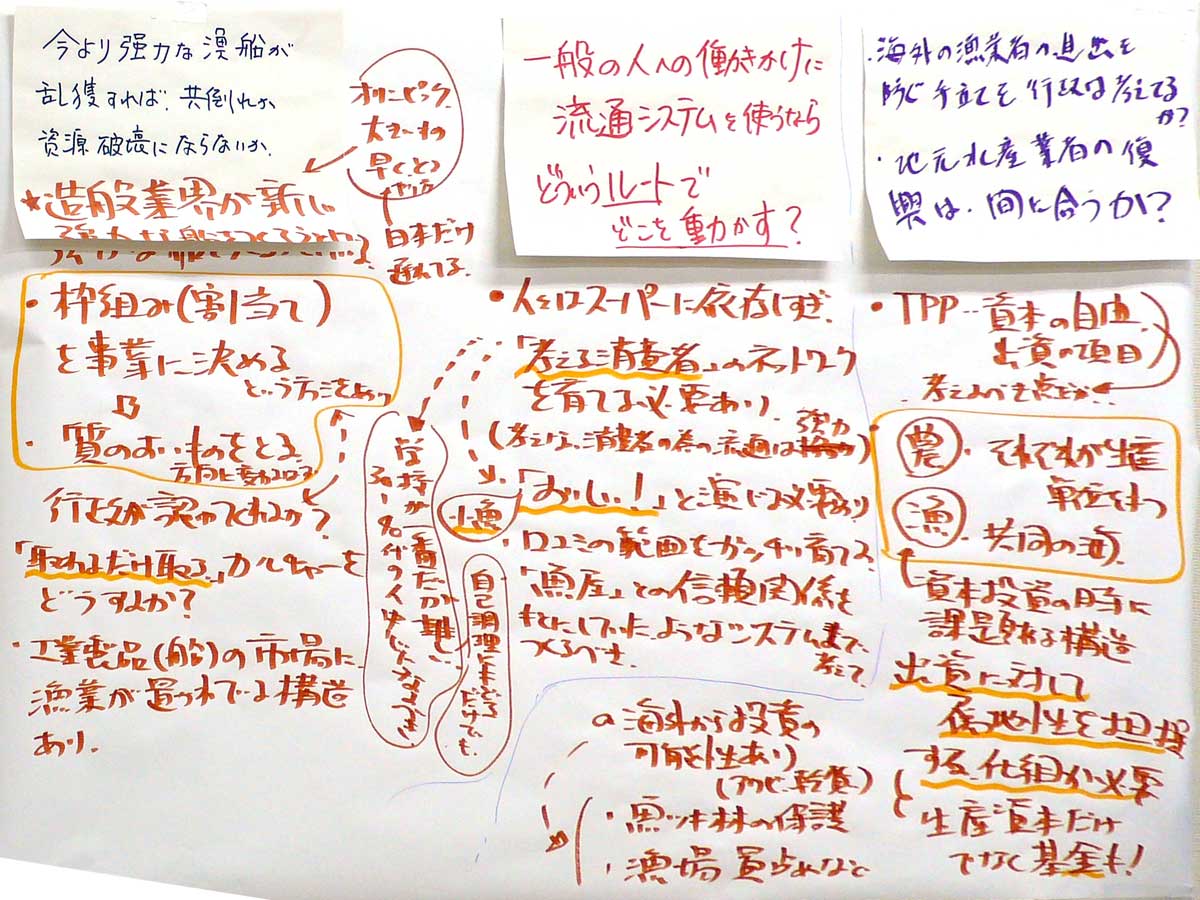 今より強力な漁船が
乱獲すれば、共倒れか
資源破壊にならないか。
オリンピック
早くとる
日本だけ
遅れてる。
★造船業界が新しい
・枠組み(割当て)
を事業に決める
という方法もあり
・質のよいものをとる
方向に変わる
行政が認めてくれるか?
「取れるだけ取る」カルチャーを
どうするか?
・工業製品(船)の市場に
漁業が買われている構造
あり。
一般の人への働きかけに
流通システムを使うなら
どういうルートで
どこを動かす?
・人々はスーパーに依存しすぎ。
「考える消費者」のネットワーク
を育てる必要あり。
(考えない消費者の為の流通は強力)
・「おいしい!」と演じる必要あり
小魚
・口コミの範囲をガッチリ育てる
・「魚屋」との信頼関係を
ようなシステムまで
つくるべき。
考えて
維持が一番だが難しい
自己調理
だけでも
海外から投資の
可能性あり
(アワビ・乾貨)
・魚つき林の保護
・漁場買占めなど
・海外の漁業者の進出を
防ぐ手立てを行政は考えてる
か?
・地元水産業者の復
興は、間に合うか?
・TPP…資本の自由
出資の項目
考えるべき点だが
農・それぞれが生産
単位をもつ
漁・共同の海
資本投資の時に
課題残る構造
出資に対して
復地性を担保
する仕組が必要
と生産資本だけ
でなく基金も!